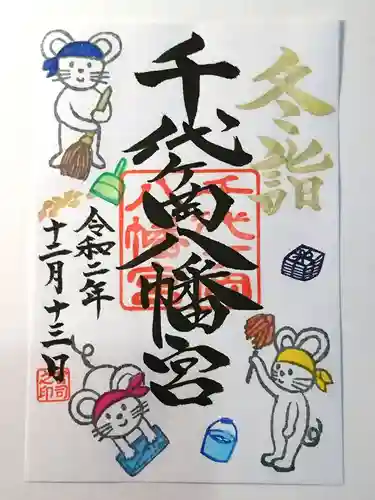 冬詣
千代ヶ岡八幡宮
令和二年
十二月十三日
千代ヶ岡
八幡宮
宮司之印